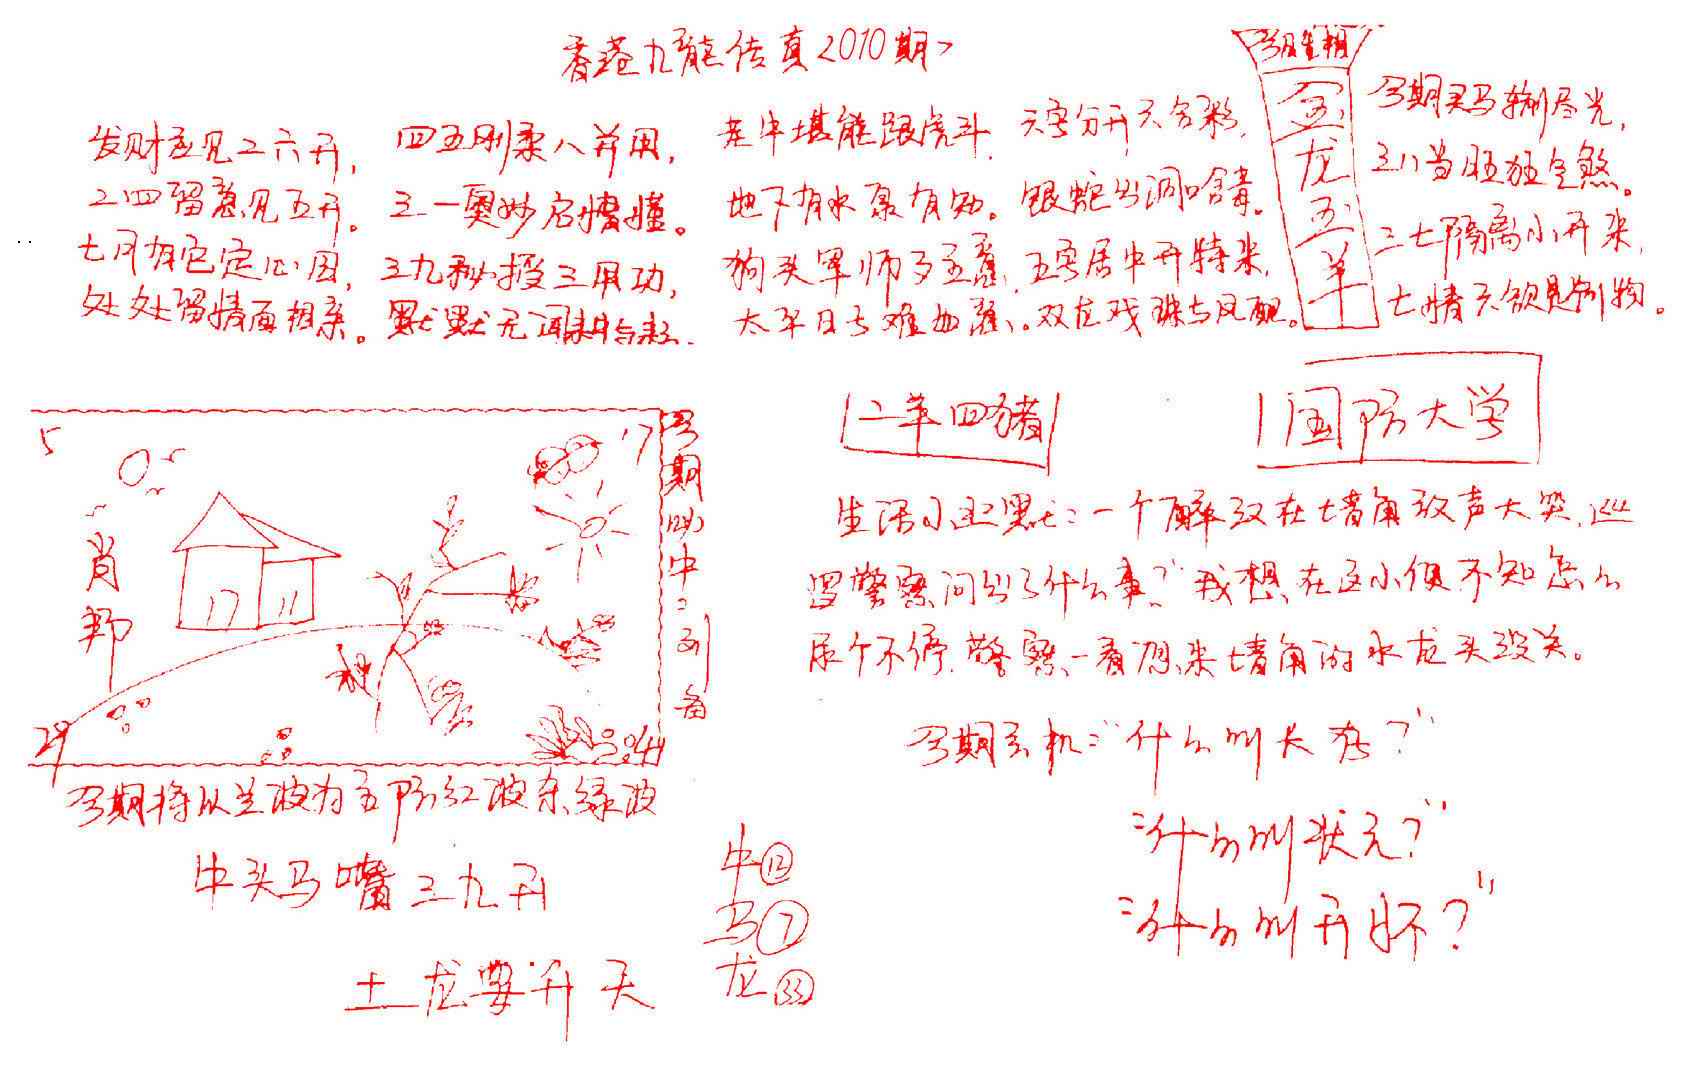 香港九龍传真<2010期>
今期生相
金龙玉羊
发财应见二六开,
二四留意见五开。
七月有它定心因,
处处留情面相亲。
四五刚柔八并用,
三一奥妙启情懂。
三九秘授三用功,
默默无闻耕与耘.
老牛堪能跟虎斗,
地下有水象有知。
狗头军师多主意,
太平日子难如意。
六字分开六合彩,
银蛇出洞口含毒。
五字居中开特来,
双龙戏珠与凤配。
今期买马输尽光,
三八当旺狂生煞。
二七隔离小开来,
七情六欲是别物。
5
17
肖邦
17 11
29
44
今期必中二列肖
今期特以兰波为主防红波杀绿波
牛头马嘴三九开
土龙要升天
牛⑫
马⑦
龙㉝
二羊四猪
国防大学
生活小幽默:一个醉汉在墙角放声大哭,巡
逻警察问出了什么事?"我想在这小便不知怎么
尿个不停,警察一看,原来墙角的水龙头没关。
今期玄机:"什么叫大荒?"
"什么叫状元?"
"什么叫开怀?"